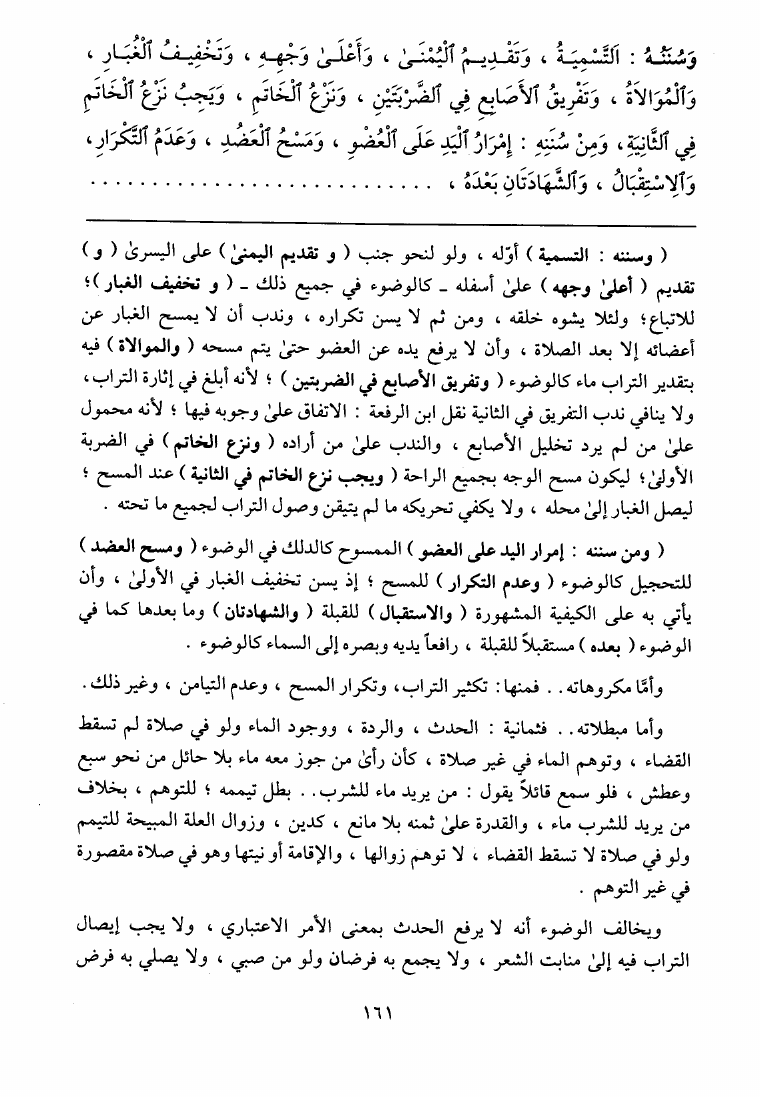 وَسُنَنُهُ : اَلتَّسْمِيَةُ ، وَتَقْدِيمُ ٱلْيُمْنَىٰ ، وَأَعْلَىٰ وَجْهِهِ ، وَتَخْفِيفُ ٱلْغُبَارِ ،
وَٱلْمُوَالاَةُ ، وَتَفْرِيقُ ٱلأَصَابِعِ فِي ٱلضَّرْبَتَيْنِ ، وَنَزْعُ ٱلْخَاتَمِ ، وَيَجِبُ نَزْعُ ٱلْخَاتَمِ
فِي ٱلثَّانِيَةِ، وَمِنْ سُنَنِهِ : إِمْرَارُ ٱلْيَدِ عَلَى ٱلْعُضْوِ ، وَمَسْحُ ٱلْعَضُدِ ، وَعَدَمُ ٱلتَّكْرَارِ،
وَٱلاِسْتِقْبَالُ ، وَٱلشَّهَادَتَانِ بَعْدَهُ ، . . . . . . . . . . . . . . . . . . . . . . . . . . . . .
( وسننه : التسمية ) أوّله ، ولو لنحو جنب ( و تقديم اليمنىٰ ) على اليسرىٰ ( و )
تقديم ( أعلىٰ وجهه ) علىٰ أسفله ـ كالوضوء في جميع ذلك ـ ( و تخفيف الغبار )؛
للاتباع؛ ولئلا يشوه خلقه ، ومن ثم لا يسن تكراره ، وندب أن لا يمسح الغبار عن
أعضائه إلا بعد الصلاة ، وأن لا يرفع يده عن العضو حتىٰ يتم مسحه ( والموالاة ) فيه
بتقدير التراب ماء كالوضوء ( وتفريق الأصابع في الضربتين ) ؛ لأنه أبلغ في إثارة التراب،
ولا ينافي ندب التفريق في الثانية نقل ابن الرفعة : الاتفاق علىٰ وجوبه فيها ؛ لأنه محمول
علىٰ من لم يرد تخليل الأصابع ، والندب علىٰ من أراده ( ونزع الخاتم ) في الضربة
الأولىٰ؛ ليكون مسح الوجه بجميع الراحة ( ويجب نزع الخاتم في الثانية ) عند المسح ؛
ليصل الغبار إلىٰ محله ، ولا يكفي تحريكه ما لم يتيقن وصول التراب لجميع ما تحته .
( ومن سننه : إمرار اليد على العضو ) الممسوح كالدلك في الوضوء ( ومسح العضد )
للتحجيل كالوضوء ( وعدم التكرار ) للمسح ؛ إذ يسن تخفيف الغبار في الأولىٰ ، وأن
يأتي به على الكيفية المشهورة ( والاستقبال ) للقبلة ( والشهادتان ) وما بعدها كما في
الوضوء ( بعده ) مستقبلاً للقبلة ، رافعاً يديه وبصره إلى السماء كالوضوء .
وأمَّا مكروهاته. . فمنها: تكثير التراب، وتكرار المسح ، وعدم التيامن ، وغير ذلك.
وأما مبطلاته. . فثمانية : الحدث ، والردة ، ووجود الماء ولو في صلاة لم تسقط
القضاء ، وتوهم الماء في غير صلاة ، كأن رأىٰ من جوز معه ماء بلا حائل من نحو سبع
وعطش ، فلو سمع قائلاً يقول : من يريد ماء للشرب. . بطل تيممه ؛ للتوهم ، بخلاف
من يريد للشرب ماء ، والقدرة علىٰ ثمنه بلا مانع ، كدين ، وزوال العلة المبيحة للتيمم
ولو في صلاة لا تسقط القضاء ، لا توهم زوالها ، والإقامة أو نيتها وهو في صلاة مقصورة
في غير التوهم .
ويخالف الوضوء أنه لا يرفع الحدث بمعنى الأمر الاعتباري ، ولا يجب إيصال
التراب فيه إلىٰ منابت الشعر ، ولا يجمع به فرضان ولو من صبي ، ولا يصلي به فرض
١٦١